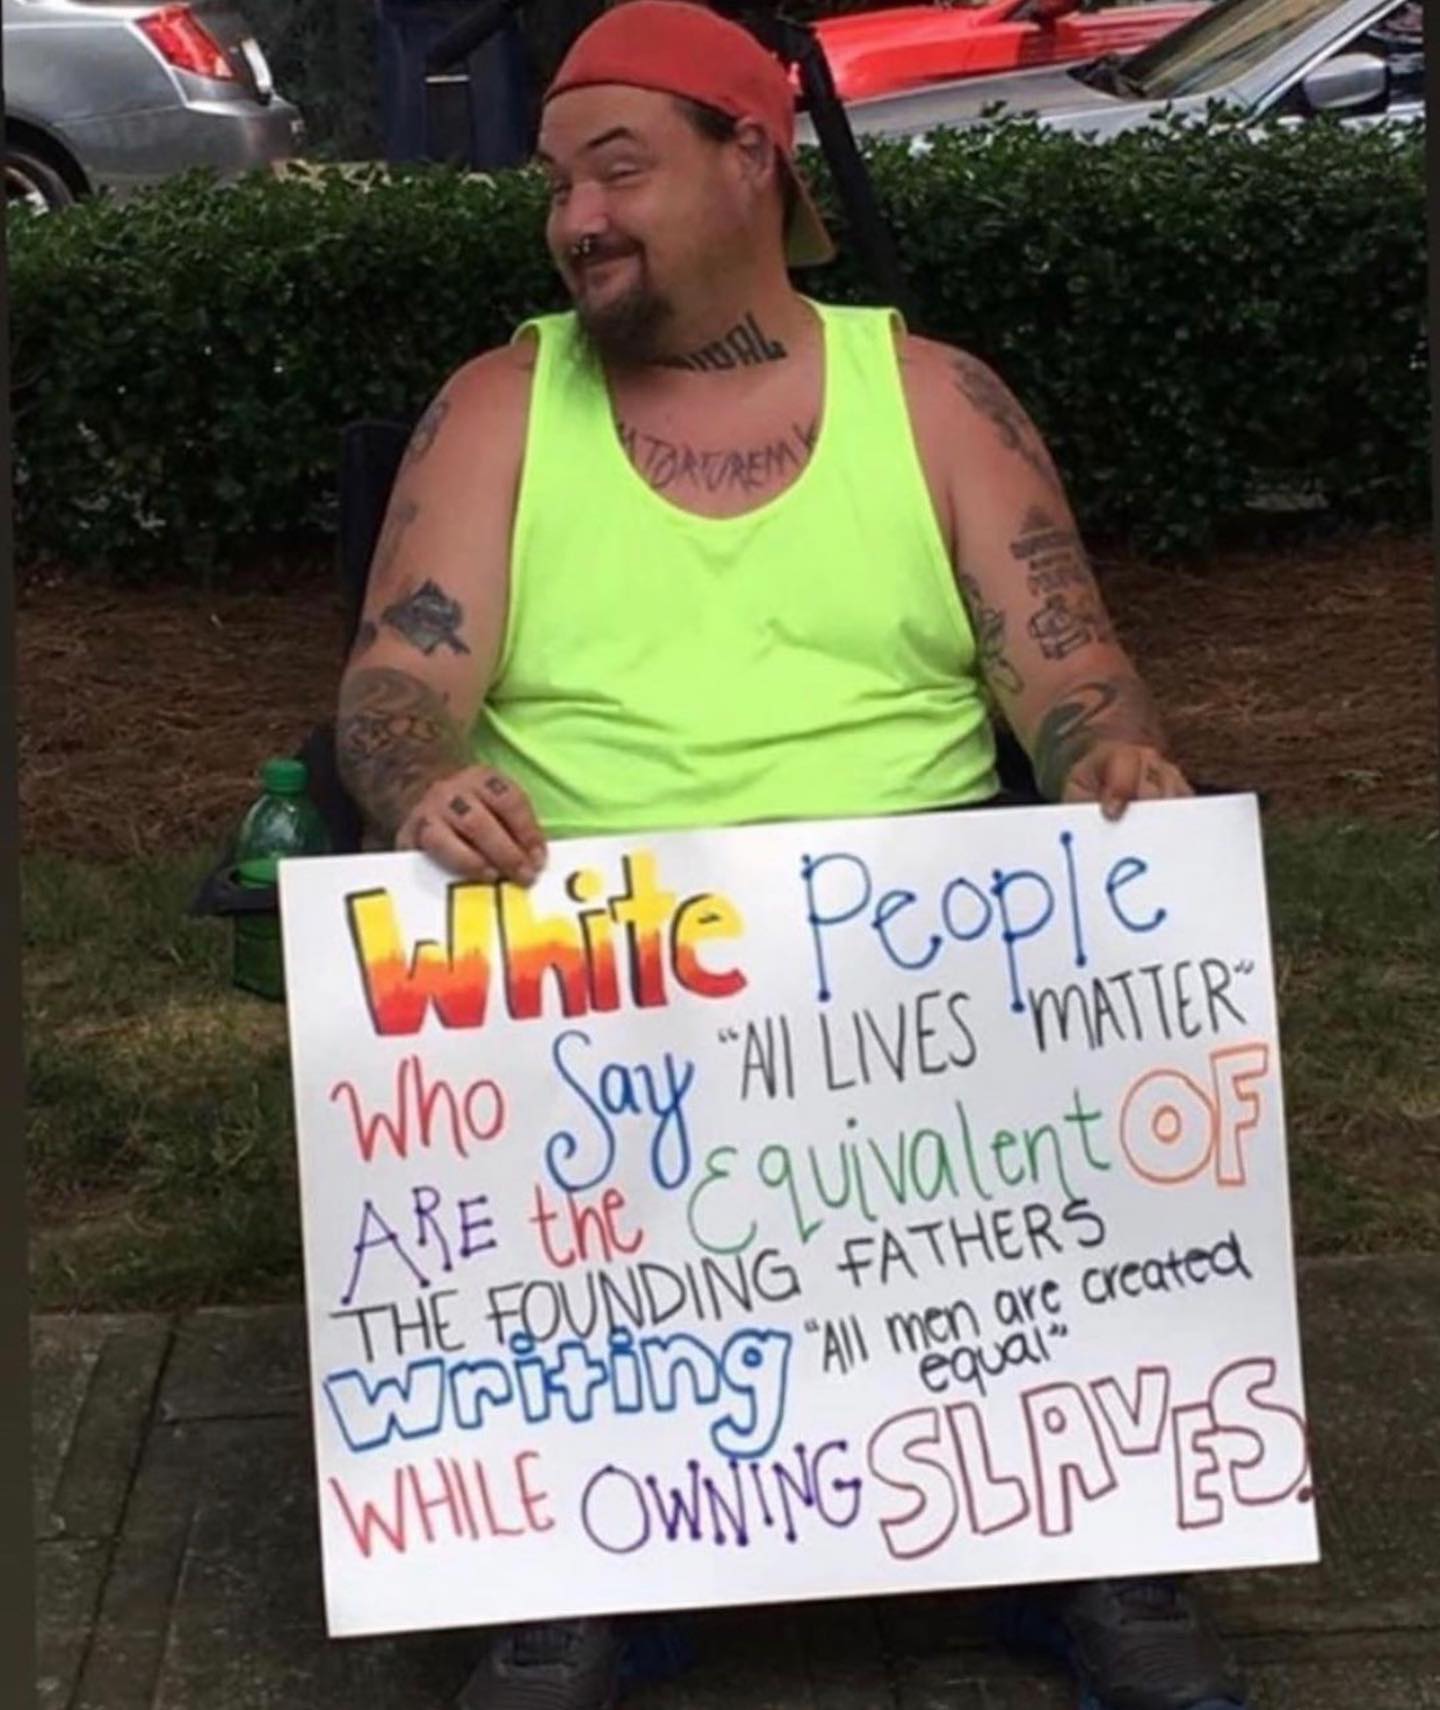 White People
Who Say "All LIVES MATTER"
ARE the Equivalent OF
THE FOUNDING FATHERS
writing "All men are created
equal"
WHILE OWNING SLAVES.